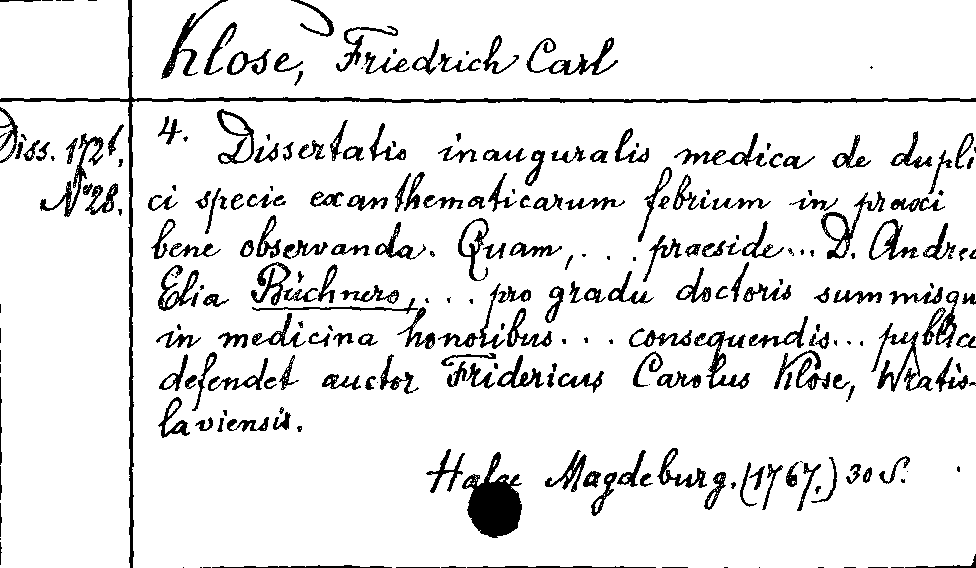 Klose, Friedrich Carl
Diss. 172f,
N°28.
4. Dissertatio inauguralis medica de dupli
ci specie exanthematicarum febrium in praxi
bene observanda. Quam, . . . praeside... D. Andrea
Elia Büchnero, . . . pro gradu doctoris summisqu
in medicina honoribus . . . consequendis... publice
defendet auctor Fridericus Carolus Klose, Wratis-
laviensis.
Halae Magdeburg. (1767.) 30 S.